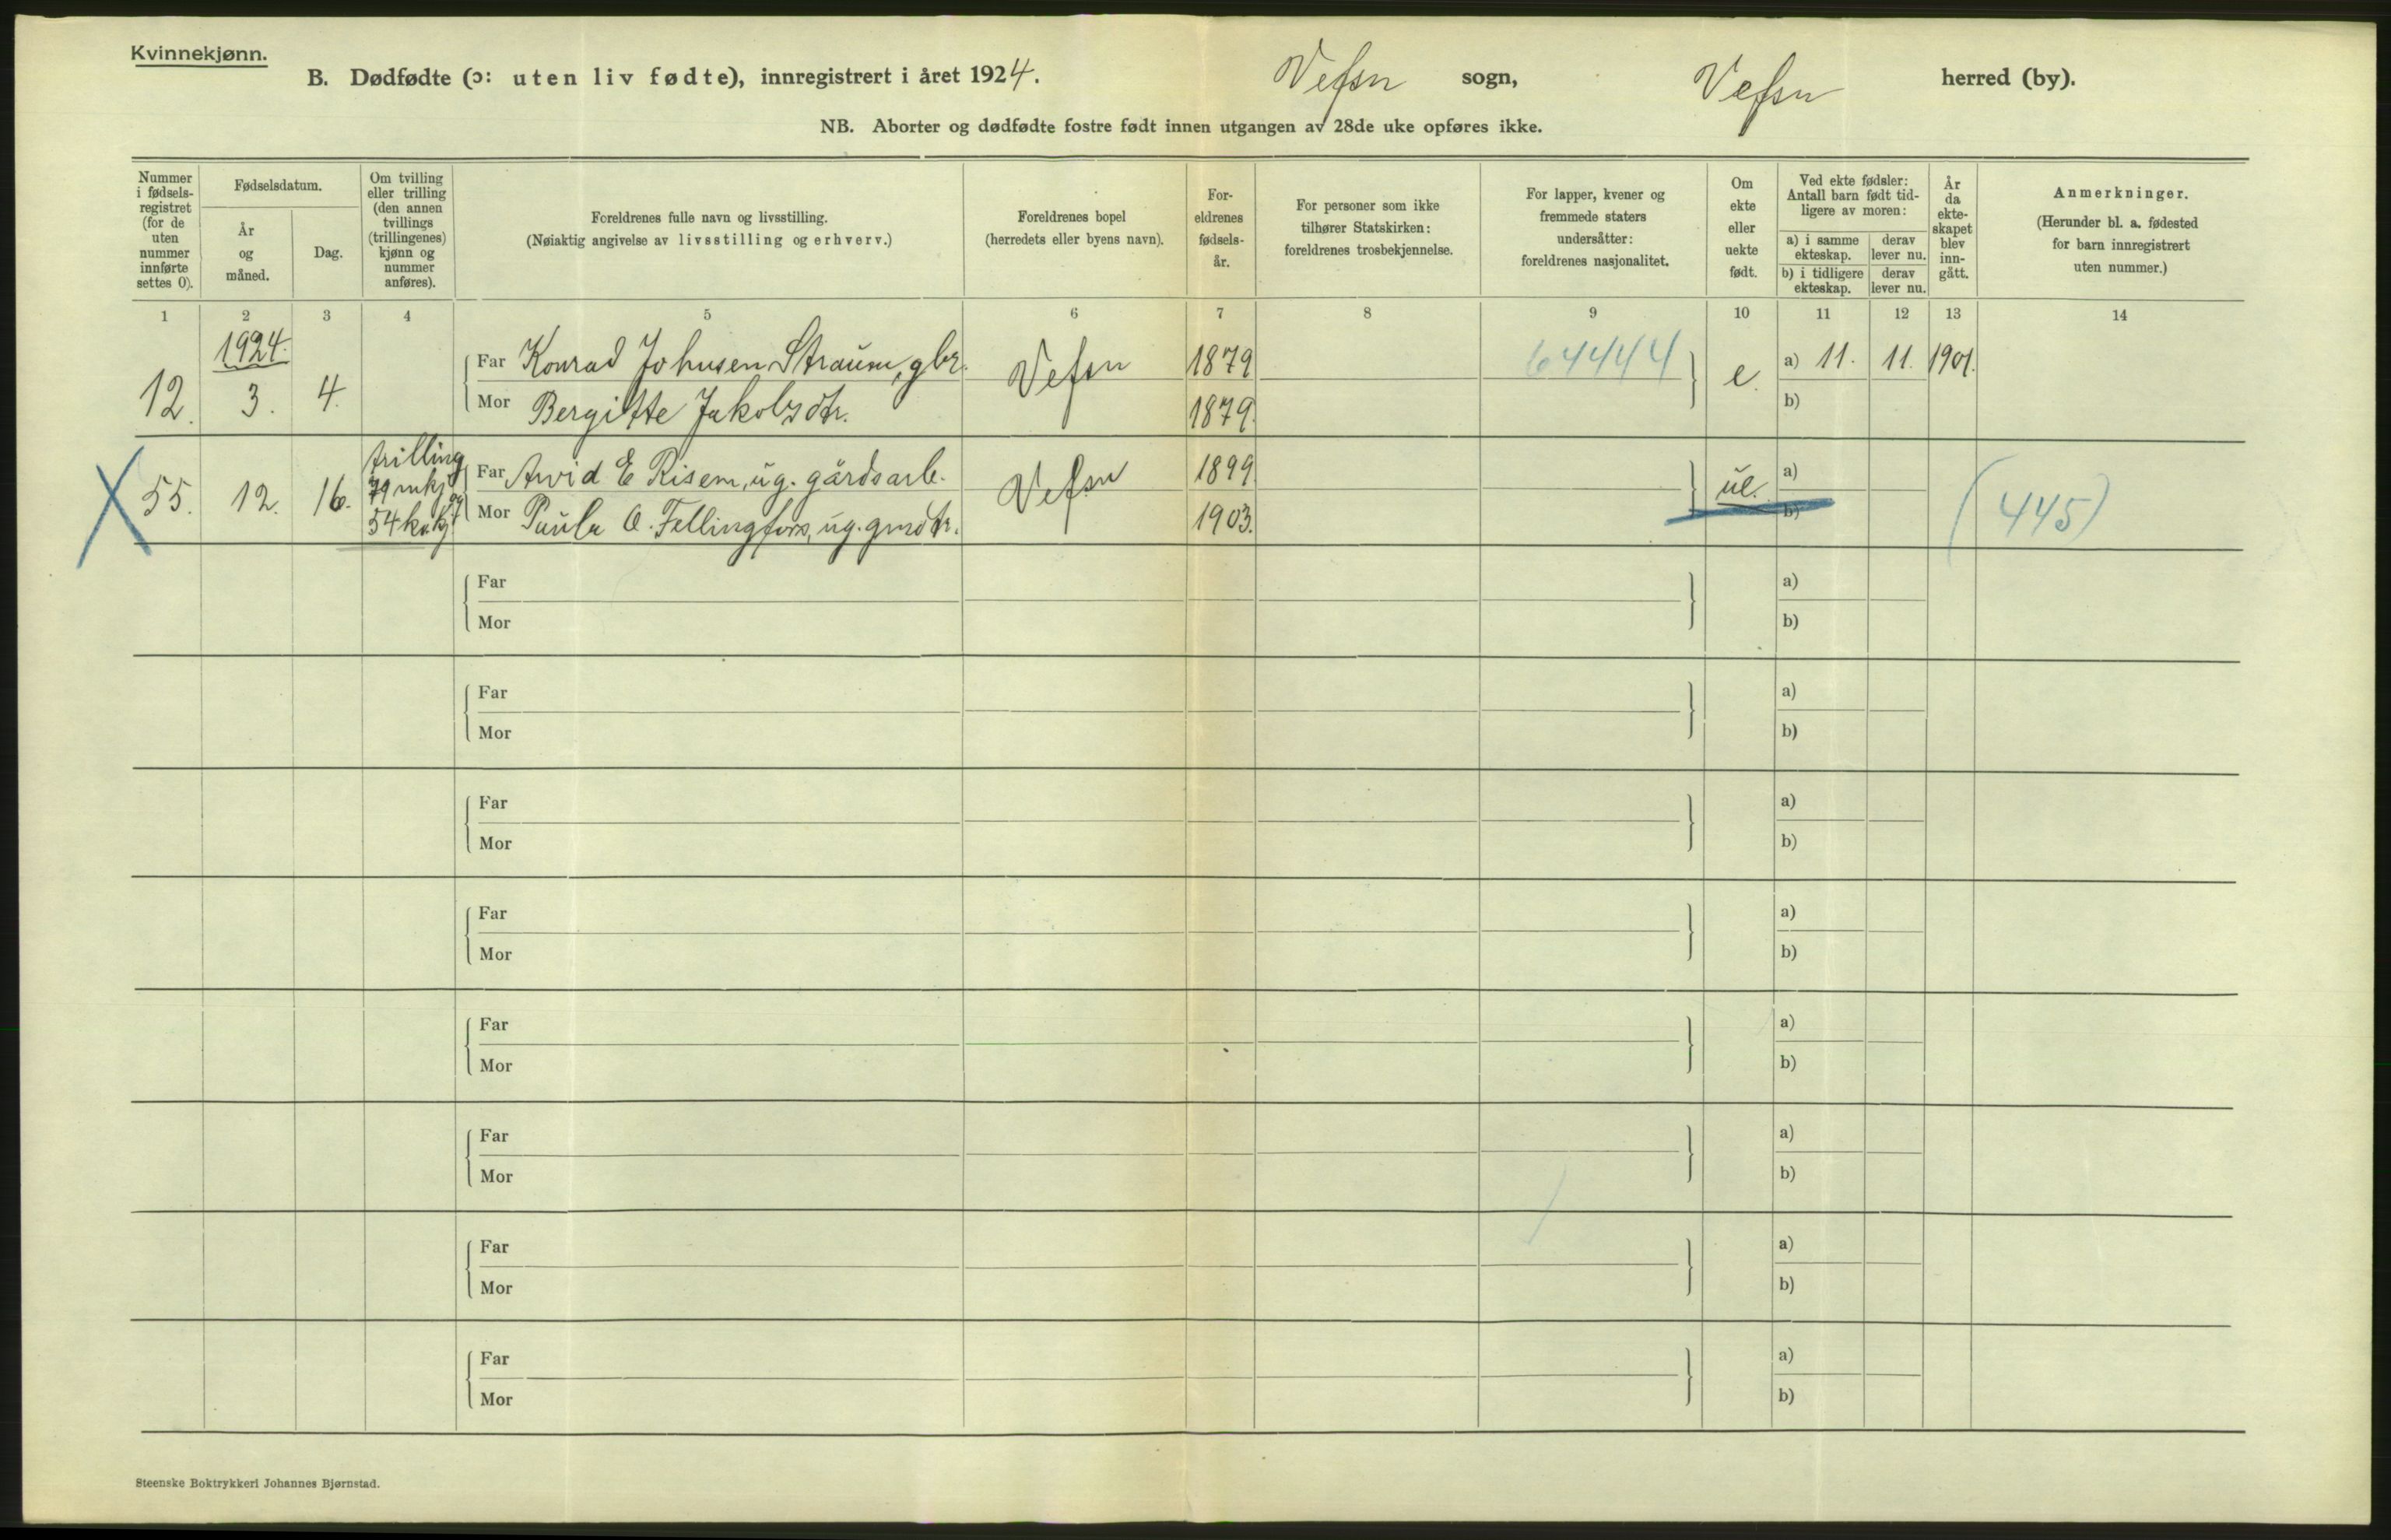 Kvinnekjønn.
B. Dødfødte (ɔ: uten liv fødte), innregistrert i året 1924. Vefsn sogn, Vefsn herred (by).
NB. Aborter og dødfødte fostre født innen utgangen av 28de uke opføres ikke.
Nummer i fødsels-registret (for de uten nummer innførte settes 0).
Fødselsdatum.
År og måned.
Dag.
Om tvilling eller trilling (den annen tvillings (trillingenes) kjønn og nummer anføres).
Foreldrenes fulle navn og livsstilling.
(Nøiaktig angivelse av livsstilling og erhverv.)
Foreldrenes bopel
(herredets eller byens navn).
For-eldrenes fødsels-år.
For personer som ikke tilhører Statskirken: foreldrenes trosbekjennelse.
For lapper, kvener og fremmede staters undersåtter: foreldrenes nasjonalitet.
Om ekte eller uekte født.
Ved ekte fødsler: Antall barn født tid-ligere av moren:
a) i samme ekteskap. derav lever nu.
b) i tidligere ekteskap. derav lever nu.
År da ekte-skapet blev inn-gått.
Anmerkninger.
(Herunder bl. a. fødested for barn innregistrert uten nummer.)
1 2 3 4 5 6 7 8 9 10 11 12 13 14
1924.
12. 3. 4. Far Konrad Johnsen Straum, gbr. Vefsn 1879 64444 e. a) 11. 11. 1901.
Mor Bergitte Jakobsdtr. 1879. b)
55. 12. 16. trilling 79 mkj og 54 kv.kj. Far Arvid E Risem, ug. gårdsarb. Vefsn 1899 ue. a)
Mor Paula O. Fellingfors, ug. gmdtr. 1903. b) (445)
Far a)
Mor b)
Far a)
Mor b)
Far a)
Mor b)
Far a)
Mor b)
Far a)
Mor b)
Far a)
Mor b)
Far a)
Mor b)
Far a)
Mor b)
Steenske Boktrykkeri Johannes Bjørnstad.